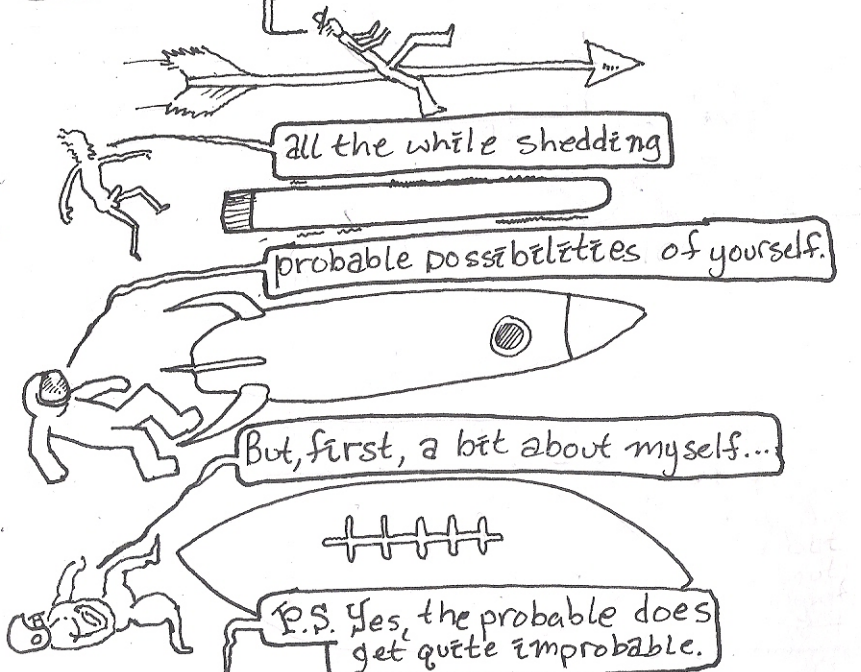 all the while shedding
probable possibilities of yourself.
But, first, a bit about myself...
P.S. Yes, the probable does
get quite improbable.